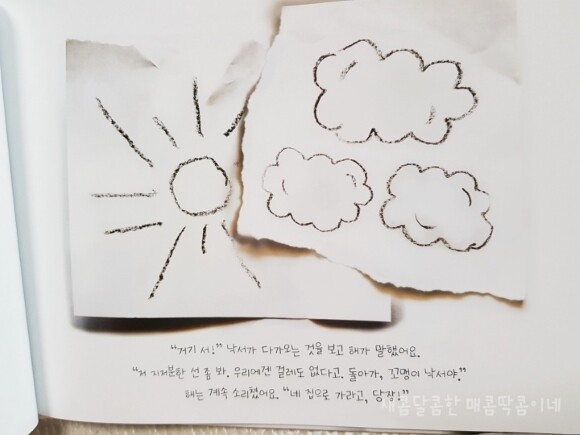 “거기 서!” 낙서가 다가오는 것을 보고 해가 말했어요.
“저 지저분한 선 좀 봐. 우리에겐 걸레도 없다고. 돌아가, 꼬맹이 낙서야.”
해는 계속 소리쳤어요. “네 집으로 가라고, 당장!”
새콤달콤한 매콤딱콤이네